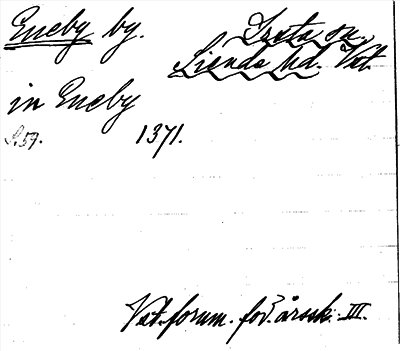 Eneby by. Irsta sn.
Siende hd. Vst.
in Eneby
S. 57. 1371.
Vst. fornm. för. årssk. III.